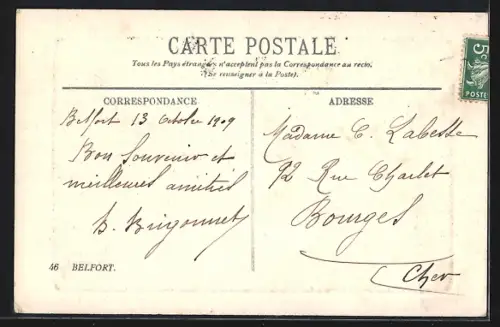 CARTE POSTALE
Tous les Pays étrangers n'acceptent pas la Correspondance au recto.
(Se renseigner à la Poste).
CORRESPONDANCE
Belfort 13 Octobre 1909
Bon Souvenir et
meilleures amitiés
B. Brigonnet
46 BELFORT.
ADRESSE
Madame C. Labesse
92 Rue Charlet
Bourges
Cher
5c
POSTES